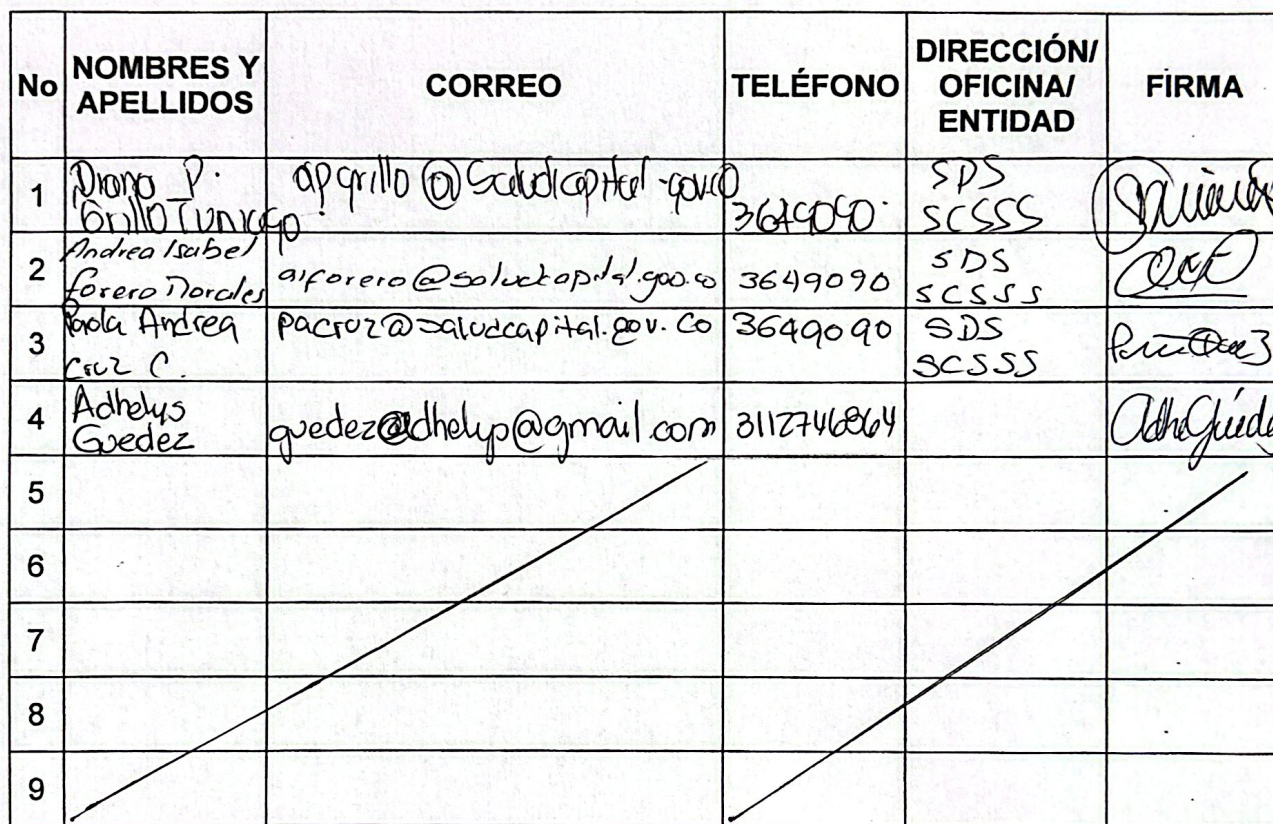 No NOMBRES Y APELLIDOS CORREO TELÉFONO DIRECCIÓN/ OFICINA/ ENTIDAD FIRMA
1 Diana P. Grillo Tunico apgrillo@Saludcapital.gov.co 3649090. SDS SCSSS
2 Andrea Isabel forero Morales aiforero@saludcapital.gov.co 3649090 SDS SCSSS
3 Paola Andrea Cruz C. pacruz@saludcapital.gov.co 3649090 SDS SCSSS
4 Adhelys Guedez guedez@dhelys@gmail.com AdheGuéde
5
6
7
8
9